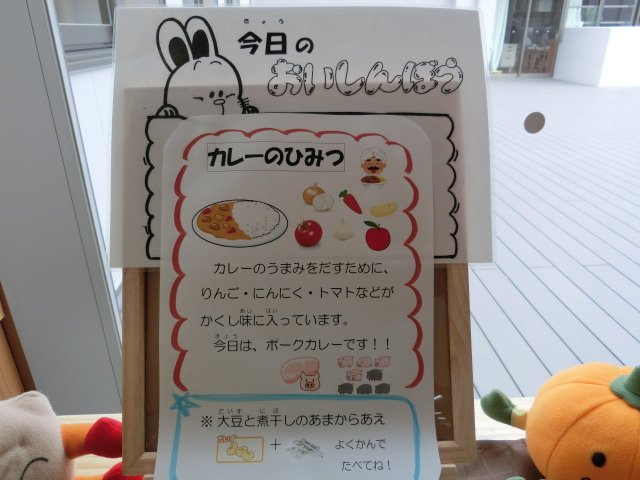 今日の
きょう
おいしんぼう
カレーのひみつ
カレーのうまみをだすために、
りんご・にんにく・トマトなどが
あじ はい
かくし味に入っています。
きょう
今日は、ポークカレーです！！
だいず にぼ
※大豆と煮干しのあまからあえ
+
よくかんで
たべてね！